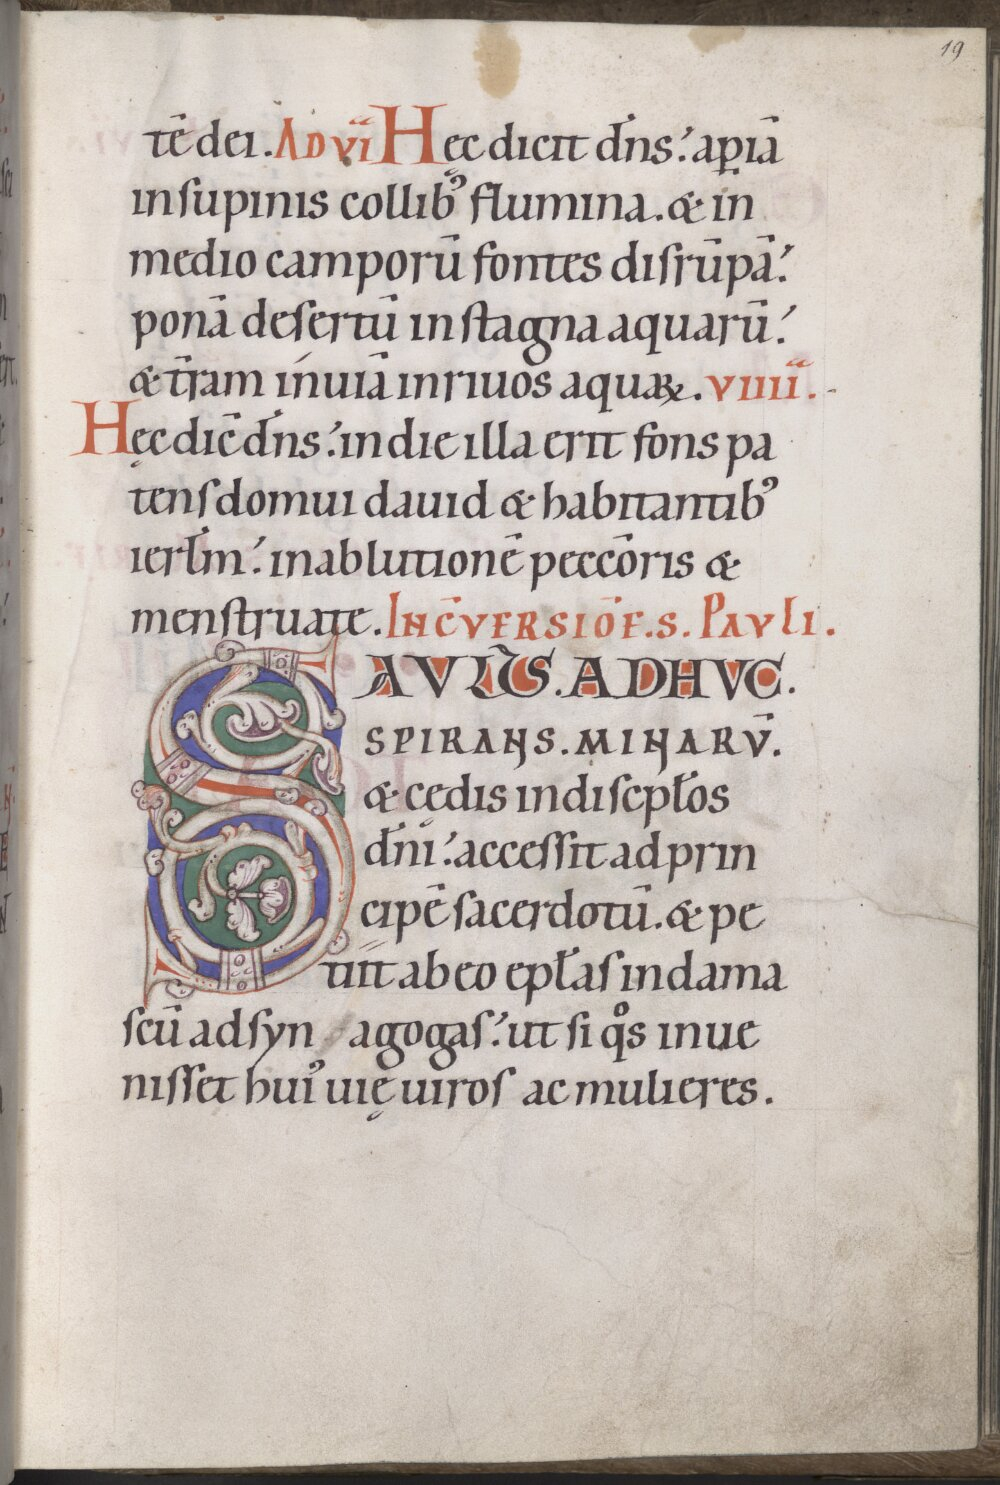 19
tē dei. AD VI Hęc dicit dn̄s: apiā
in supinis collib⁹ flumina. & in
medio camporū fontes disrūpā:
ponā desertū in stagna aquarū:
& t̄ram inuiā in riuos aquaꝝ. VIIII.
Hęc dic̄ dn̄s: in die illa erit fons pa
tens domui dauid & habitantib⁹
ierlm̄: in ablutionē peccōris &
menstruate. IN C̄VERSIŌE. S. PAVLI.
SAVLUS. ADHVC.
SPIRANS. MINARV̄.
& cędis in discipl̄os
dn̄i: accessit ad prin
cipē sacerdotū. & pe
tiit ab eo epl̄as in dama
scū ad syn agogas: ut si qͦs inue
nisset hui⁹ uię uiros ac mulieres.